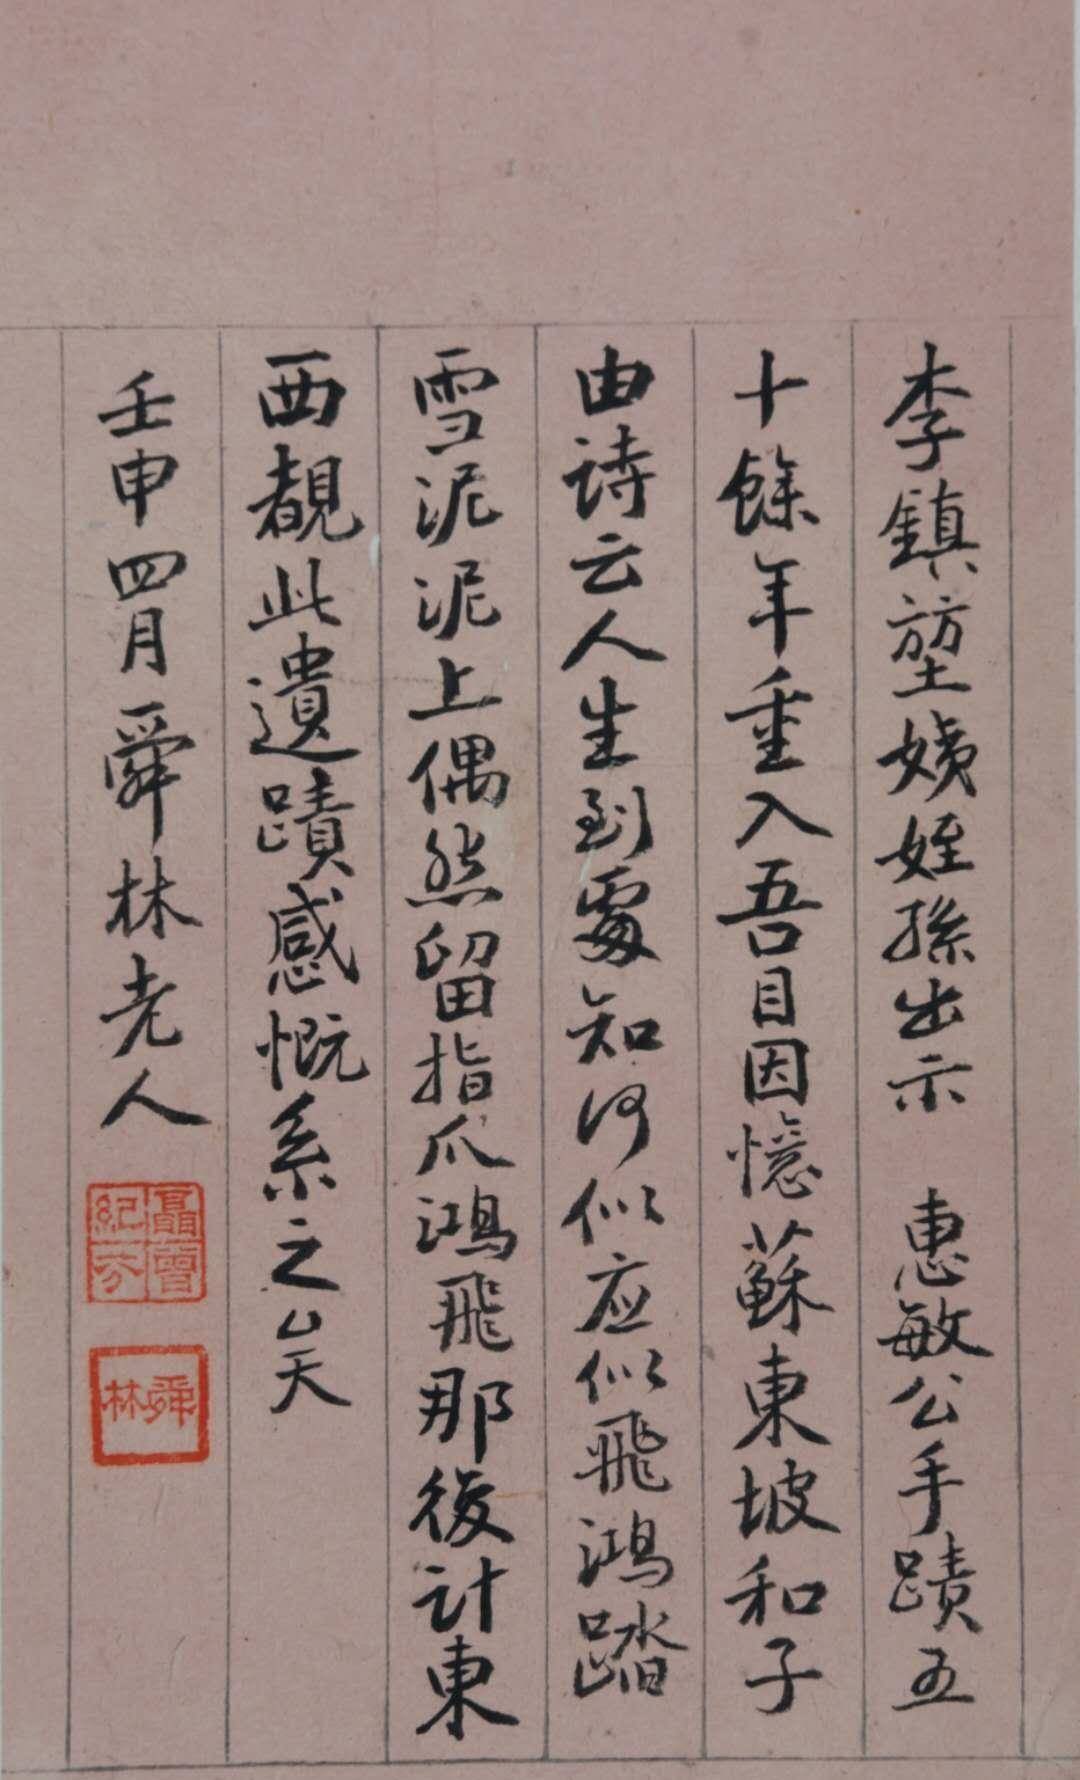 李鎮堃姨姪孫出示　惠敏公手蹟五
十餘年重入吾目因憶蘇東坡和子
由詩云人生到處知何似应似飛鴻踏
雪泥泥上偶然留指爪鴻飛那後計東
西覩此遺蹟感慨系之矣
壬申四月舜林老人
聶曾紀芳
舜林